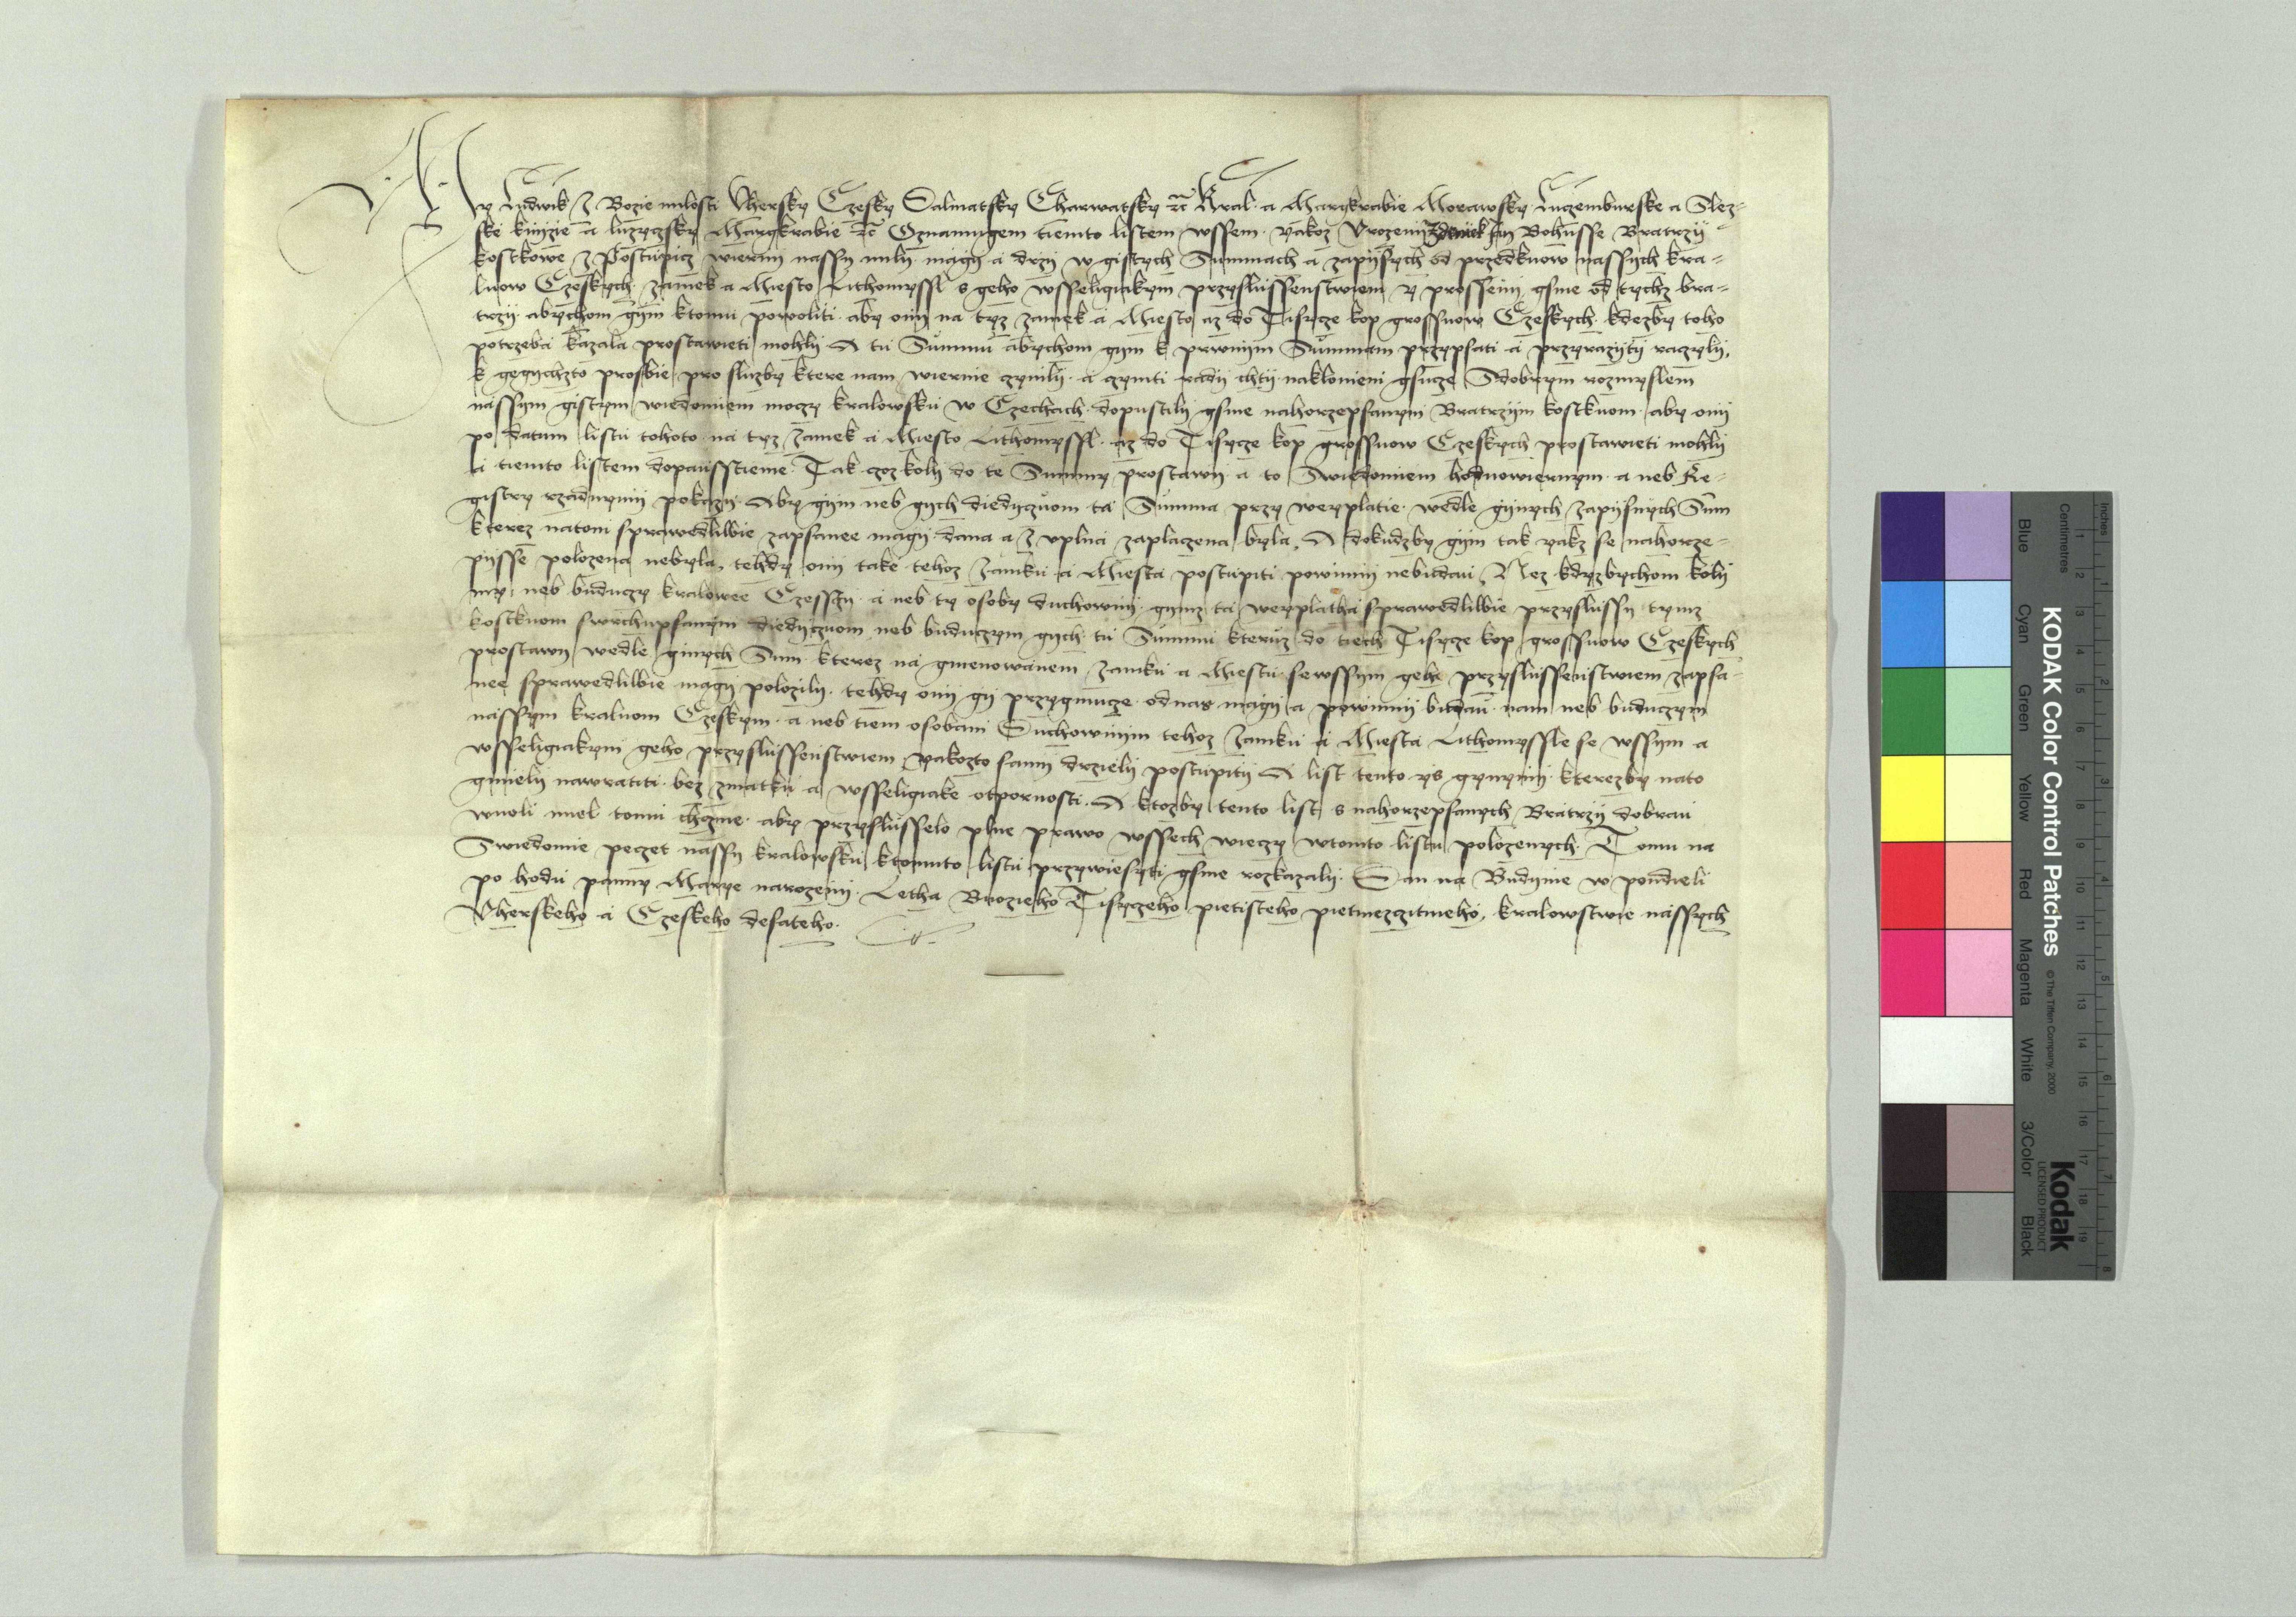 My Ludwik z Bozie milosti Uhersky Czesky Dalmatsky Charwatsky ꝛc̃ Kral a Margkrabie Morawsky Luczemburske a Slez-
ske knijzie a luzyczsky Margkrabie ꝛc̃ Oznamugem tiemto listem wssem yakoz Urozenij Zdeniek Jan Bohusse Bratrzij
kostkowe z Postupicz wiernij nassy milij magij a drzij w gistych Summach a zapijsych od przedkuow nassych kra-
luow Czeskych zamek a Miesto Lithomyssl s geho wsseligiakym przyslussenstwiem y prosseni gsme od tychz bra-
trzij abychom gijm ktomu powoliti aby onij na tyz zamek a Miesto az do Tisycze kop grossuow Czeskych kdezby toho
potrzeba kazala prostawieti mohlij A tu Summu abychom gijm k prwnijm Summam przypsati a przyrazijtij raczylij,
k gegijchzto prosbie pro sluzby ktere nam wiernie czynilij a czyniti radij chtij naklonieni gsucze Sdobrym rozmyslem
nassym gistym wiedomiem moczy kralowsku w Czechach dopustilij gsme nahorzepsanym Bratrzijm kostkuom aby onij
po datum listu tohoto na tyz zamek a Miesto Lithomyssl az do Tisycze kop grossuow Czeskych prostawieti mohlij
a tiemto listem dopausstieme Tak czoz kolij do te Summy prostawij a to Swiedomiem hodnowiernym a neb Re-
gistry rzadnymij pokazij Aby gijm neb gych diedyczuom ta Summa przy weyplatie wedle gijnych zapijsnych Sum
kterez natom sprawedlilbie zapsanee magij dana a z uplna zaplaczena byla, A dokudzby gijm tak yakz se nahorze-
pijsse polozena nebyla, tehdy onij take tehoz zamku a Miesta postupiti powinnij nebudau Nez kdyzbychom kolij
my neb buduczy kralowee Czesstij a neb ty osoby duchownij gymz ta weyplatha sprawedlilbie przyslussij tymz
kostkuom swrchupsanym diedyczuom neb buduczym gych tu Summu kteruz do tiech Tisycze kop grossuow Czeskych
prostawij wedle ginych Sum kterez na gmenowanem zamku a Miestu sewssijm geho przyslussenstwiem zapsa-
nee sprawedlilbie magij polozilij tehdy onij gij przygmucze odnas magij a powinnij budau nam neb buduczym
nassym kraluom Czeskym a neb tiem osobam Duchownijm tehoz zamku a Miesta Lithomyssle se wssijm a
wsseligiakym geho przyslussenstwiem yakozto sami drzielij postupitij A list tento ys gynymij kterezby nato
gmielij nawratiti bez zmatku a wsseligiake otpornosti. A ktozby tento list s nahorzepsanych Bratrzij dobrau
wuoli miel tomu chczme aby przyslusselo plne prawo wssech wieczy wtomto listu polozenych Tomu na
Swiedomie peczet nassij kralowsku ktomuto listu przywiesyti gsme rozkazalij Dan na Budynie w pondieli
po hodu panny Marye narozenij Letha Buozieho Tisyczeho pietisteho pietmezczitmeho, kralowstwie nassych
Uherskeho a Czeskeho desateho.
KODAK Color Control Patches
© The Tiffen Company, 2000
Kodak
LICENSED PRODUCT
Inches
Centimetres
Blue
Cyan
Green
Yellow
Red
Magenta
White
3/Color
Black
1 2 3 4 5 6 7 8
1 2 3 4 5 6 7 8 9 10 11 12 13 14 15 16 17 18 19